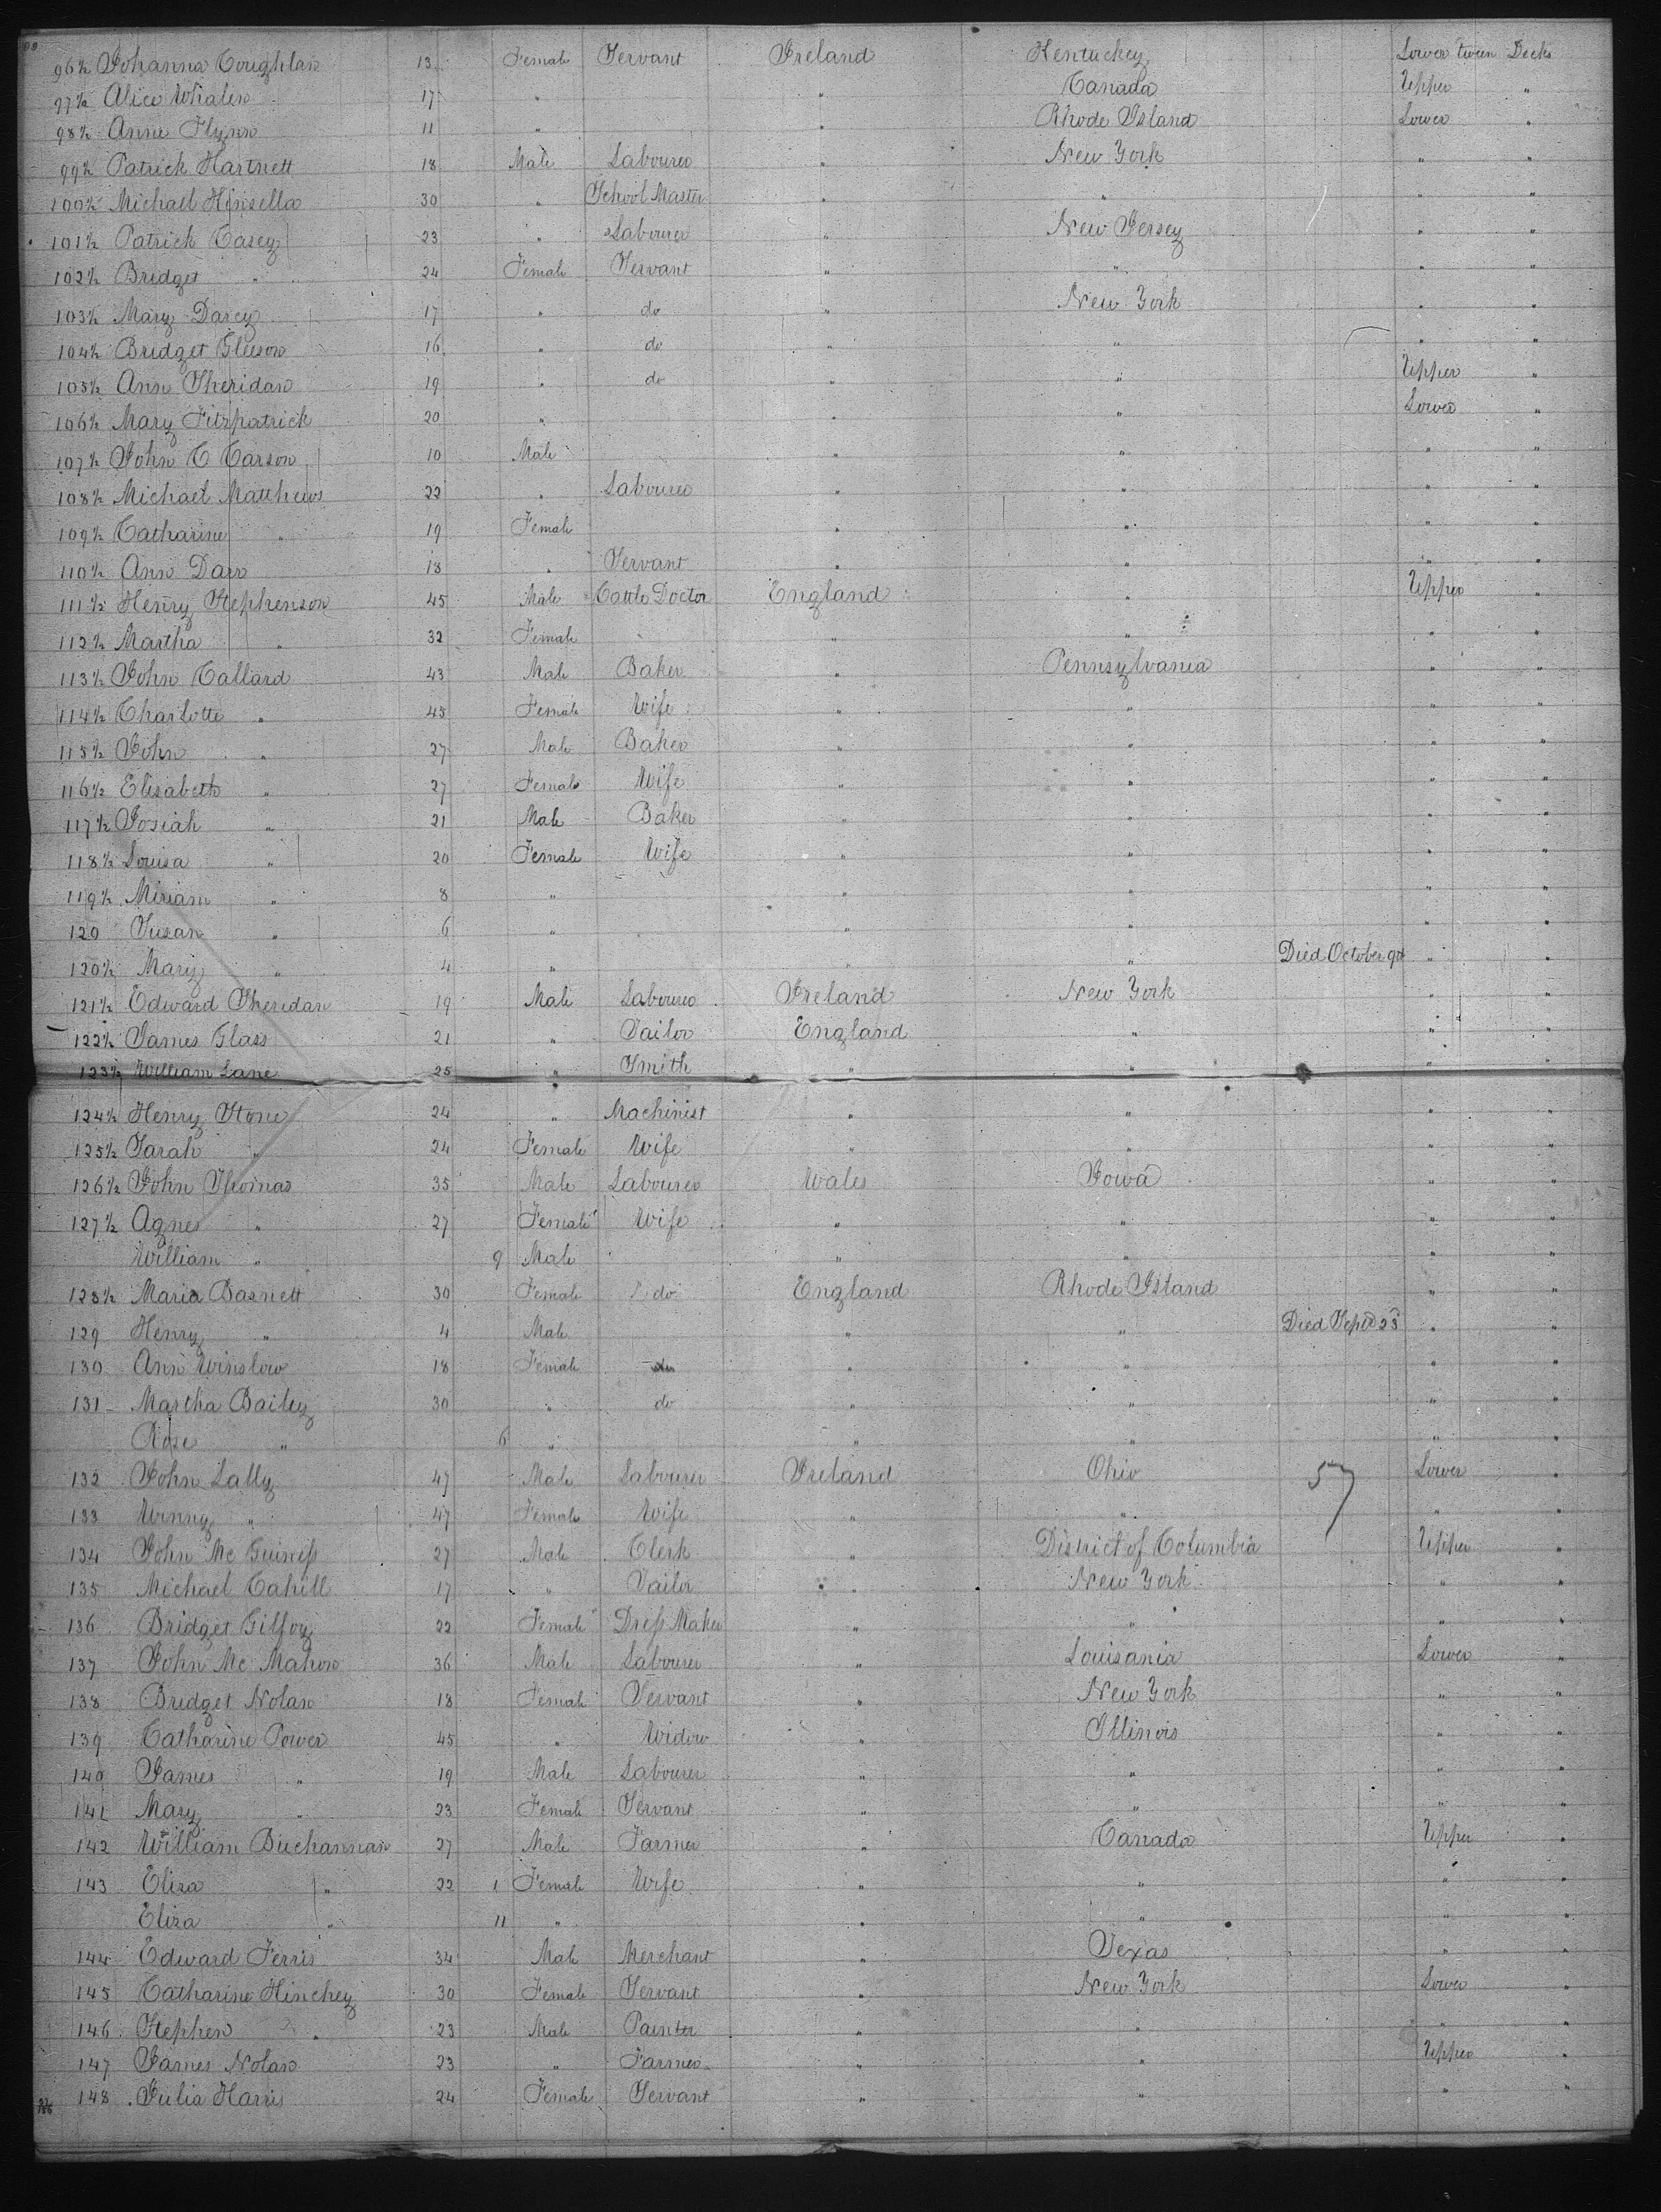 96½ Johanna Coughlan 13 Female Servant Ireland Kentuckey Lower tween Decks
97½ Alice Whalen 17 " " Canada Upper "
98½ Anne Flynn 11 " " Rhode Island Lower "
99½ Patrick Hartnett 18 Male Labourer " New York " "
100½ Michael Kinsella 30 " School Master " " " "
101½ Patrick Casey 23 " Labourer " New Jersey " "
102½ Bridget " 24 Female Servant " " " "
103½ Mary Darcy 17 " do " New York " "
104½ Bridget Gleeson 16 " do " " " "
105½ Ann Sheridan 19 " do " " Upper "
106½ Mary Fitzpatrick 20 " " " Lower "
107½ John C Carson 10 Male " " " "
108½ Michael Matthews 22 " Labourer " " " "
109½ Catharine " 19 Female " " " "
110½ Ann Darr 18 " Servant " " " "
111½ Henry Stephenson 45 Male Cattle Doctor England " Upper "
112½ Martha " 32 Female " " " "
113½ John Callard 43 Male Baker " Pennsylvania " "
114½ Charlotte " 45 Female Wife " " " "
115½ John " 27 Male Baker " " " "
116½ Elisabeth " 27 Female Wife " " " "
117½ Josiah " 21 Male Baker " " " "
118½ Louisa " 20 Female Wife " " " "
119½ Miriam " 8 " " " " "
120 Susan " 6 " " " " "
120½ Mary " 4 " " " Died October 9th " "
121½ Edward Sheridan 19 Male Labourer Ireland New York " "
122½ James Glass 21 " Tailor England " " "
123½ William Lane 25 " Smith " " " "
124½ Henry Stone 24 " Machinist " " " "
125½ Sarah " 24 Female Wife " " " "
126½ John Thomas 35 Male Labourer Wales Iowa " "
127½ Agnes " 27 Female Wife " " " "
William " 9 Male " " " "
128½ Maria Basnett 30 Female do England Rhode Island " "
129 Henry " 4 Male " " Died Sept 23 " "
130 Ann Winslow 18 Female do " " " "
131 Martha Bailey 30 " do " " " "
Rose " 6 " " " " "
132 John Lally 47 Male Labourer Ireland Ohio 57 Lower "
133 Winny " 47 Female Wife " " " "
134 John Mc Guiness 27 Male Clerk " District of Columbia Upper "
135 Michael Cahill 17 " Tailor " New York " "
136 Bridget Gilfoy 22 Female Dress Maker " " " "
137 John Mc Mahon 36 Male Labourer " Louisania Lower "
138 Bridget Nolan 18 Female Servant " New York " "
139 Catharine Power 45 " Widow " Illinois " "
140 James " 19 Male Labourer " " " "
141 Mary " 23 Female Servant " " " "
142 William Buchannan 27 Male Farmer " Canada Upper "
143 Eliza " 22 1 Female Wife " " " "
Eliza " 11 " " " " "
144 Edward Ferris 34 Male Merchant " Texas " "
145 Catharine Hinchey 30 Female Servant " New York Lower "
146 Stephen " 23 Male Painter " " " "
147 James Nolan 23 " Farmer " " Upper "
148 Julia Harris 24 Female Servant " " " "